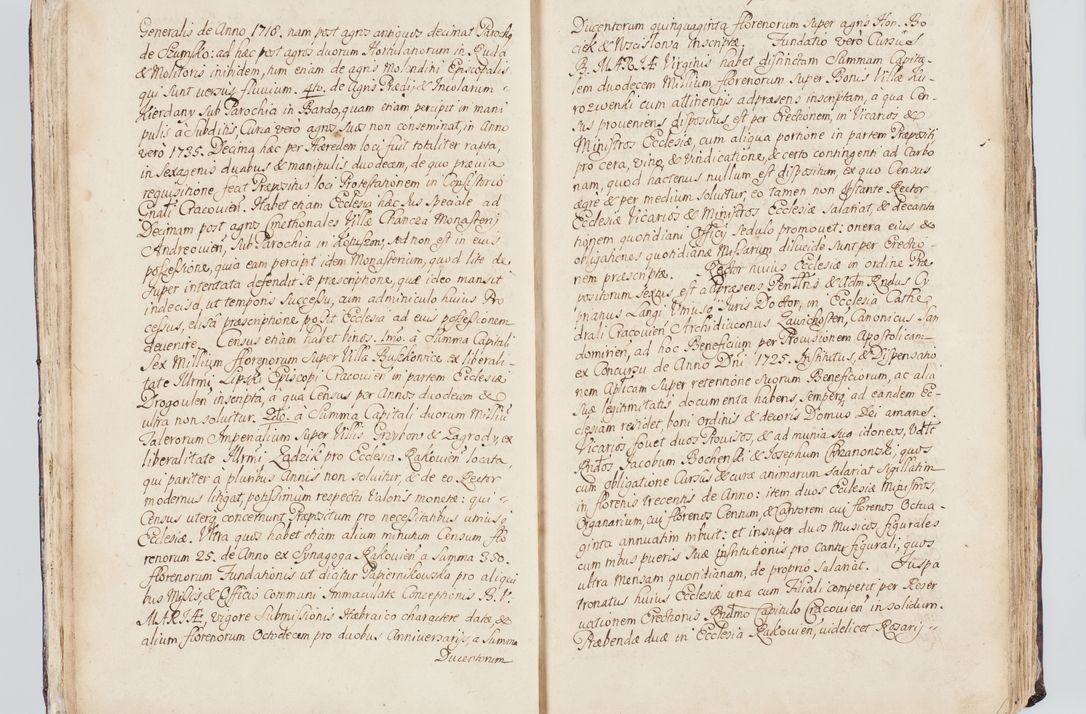 Generalis de Anno 1718. nam post agros antiquos decimat Parochus
de Szumsko: ad hac post agros duorum Hortulanorum in Ruda
& Molitoris inibidem, tum etiam de agris Molendini Episcopalis
qui sunt versus fluvium. 4to. de agris Prædij & Incolarum
Kierdany sub Parochia in Bardo, quam etiam percipit in mani
pulis à Subditis, Curia vero agros suos non conseminat, in Anno
vero 1735. Decima hæc per Hæredem loci fuit totaliter rapta,
in sexagenis duabus & manipulis duodecem, de quo prævia
requisitione, fecit Præpositus loci Protestationem in Consistorio
Gnāli Cracovien. Habet etiam Ecclesia hæc Jus speciale ad
Decimam post agros Cmethonales Villæ Chancza Monasterij
Andreovien, sub Parochia in Kotuszem, sed non est in eius
possessione, quia eam percipit idem Monasterium, quod lite de
super intentata defendit se præscriptione, quæ ideo mansit
indecisa, ut temporis successu, cum adminiculo huius Pro
cessus, elisâ præscriptione possit Ecclesia ad eius possessionem
devenire. Census etiam habet binos. Imo. à Summa Capitali
Sex Millium florenorum super Villa Buszkovice ex liberali-
tate Illrmi Lipski Episcopi Cracovien in partem Ecclesiæ
Drogoulen inscripta, a qua Census per Annos duodecem &
ultra non solvitur. 2do. à Summa Capitali duorum Milliū
Talerorum Imperialium super Villis Grzybow & Zagrody, ex
liberalitate Illrmi Zadzik pro Ecclesia Rakovien locata,
qui pariter à pluribus Annis non solvitur, & de eo Rector
modernus litigat, potissimum respectu Valoris monetæ: qui
Census uterq concernunt Præpositum pro necessitatibus utriusq
Ecclesiæ. Ultra quos habet etiam alium minutum Censum flo
renorum 25. de Anno ex Synagoga Rakovien à Summa 350.
florenorum Fundationis ut dicitur Papiernikowska pro aliqui
bus Missis & Officio communi Immaculatæ Conceptionis B. V.
MARIÆ, vigore Submissionis Hebraico charactere datæ, &
alium, florenorum Octodecem pro duobus Anniversarijs a Summa
Ducentorum
Ducentorum quinquaginta florenorum super agris Hon. Bo
ciek & Woscislowa inscriptæ. Fundatio verò Cursus
B. MARIÆ Virginis habet distinctam Summam Capita-
lem duodecem Millium florenorum super Bonis Villæ Ku-
rozwenki cum attinentijs adpræsens inscriptam, a qua Cen-
sus proveniens dispositus est per Erectionem, in Vicarios &
Ministros Ecclesiæ, cum aliqua portione in partem Præpositi
pro cera, vino, & vindicatione, & certo contingenti ad Carbo
nam, quod hactenus nullum est dispositum, ex quo Census
ægrè & per medium solvitur, eo tamen non obstante Rector
Ecclesiæ Vicarios & Ministros Ecclesiæ salariat, & decanta
tionem quotidiani Officij sedulo promovet: onera eius &
obligationes quotidianæ Missarum dilucidè sunt per Erectio
nem præscriptæ. Rector huius Ecclesiæ in ordine Præ
positorum sextus, est adpræsens Perillris & Adm. Rndus Cy
prianus Langi Utriusq Juris Doctor, in Ecclesia Cathe
drali Cracovien Archidiaconus Zavichosten, Canonicus San
domirien, ad hoc Beneficium per Provisionem Apostolicam
ex Concursu de Anno Dni 1725. Institutus, & Dispensatio
nem Aplicam super retentione suorum Beneficiorum, ac alia
suæ legitimitatis documenta habens, semperq ad eandem Ec-
clesiam residet, boni ordinis & decoris Domus Dei amans.
Vicarios fovet duos Provisos, & ad munia sua idoneos, Vdlt
Rndos Jacobum Bochenski & Josephum Chrzanowski, quos
cum obligatione Cursus & curæ animarum salariat sigillatim
in florenis trecentis de Anno: item duos Ecclesiæ Ministros,
Organarium, cui florenos Centum, & Cantorem cui florenos Octua-
ginta annuatim tribuit: et insuper duos Musicos figurales
cum tribus pueris suæ institutionis pro cantu figurali, quos
ultra Mensam quotidianam, de proprio salariat. Juspa
tronatus huius Ecclesiæ una cum Filiali competit per Reser
vationem Erectionis Rndmo Capitulo Cracovien in solidum.
Præbendæ duæ in Ecclesia Rakovien, videlicet Rosarij